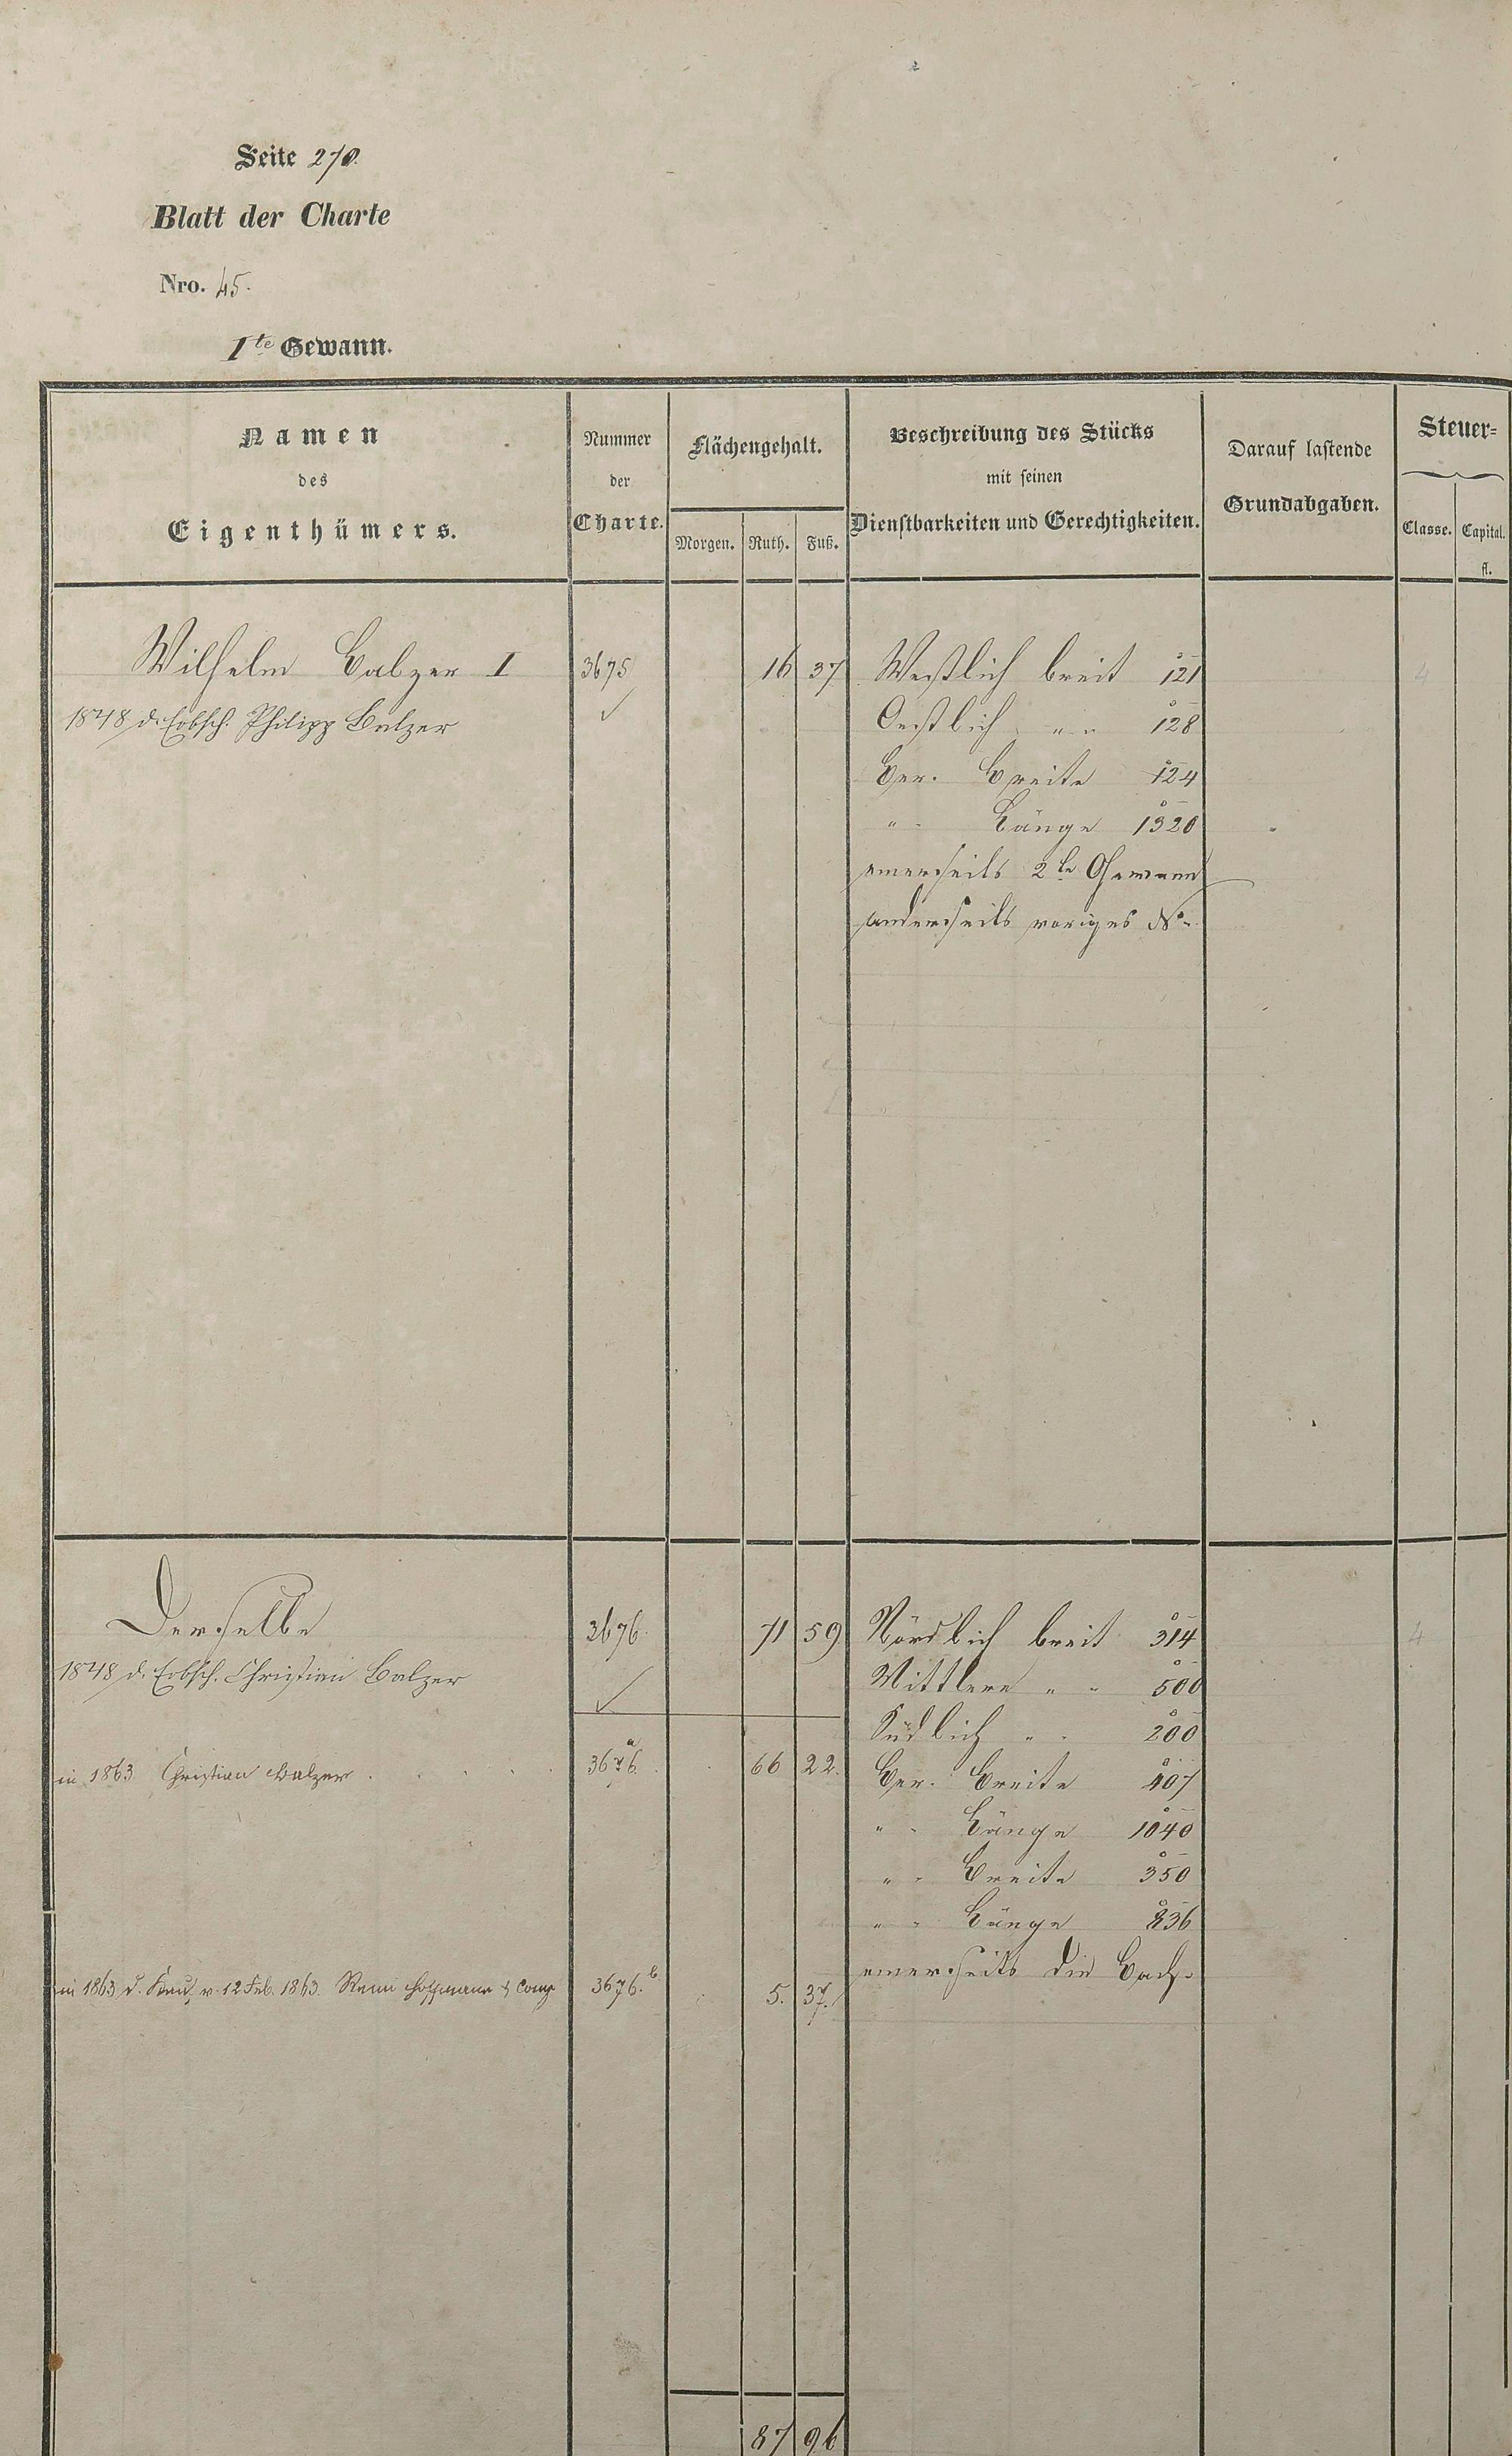 Seite 270.
Blatt der Charte
Nro. 45.
1te Gewann.
Namen
des
Eigenthümers.
Nummer
der
Charte.
Flächengehalt.
Morgen. Ruth. Fuß.
Beschreibung des Stücks
mit seinen
Dienstbarkeiten und Gerechtigkeiten.
Darauf lastende
Grundabgaben.
Steuer-
Classe. Capital.
fl.
Wilhelm Balzer I 3675 16 37 Westlich breit 121 4
1848 d. Erbsch. Philipp Balzer Oestlich " " 128
Ger. Breite 124
" " Länge 1320
einerseits 2te Gewann
anderseits voriges No.
Derselbe 3676. 71 59 Nördlich breit 314 4
1848 d. Erbsch. Christian Balzer Mittlere " " 500
Südlich " " 200
in 1863 Christian Balzer 3676.a 66 22. Ger. Breite 407
" " Länge 1040
" " Breite 350
" " Länge 836
einerseits die Bach.
in 1863 d. v. 12 Feb. 1863. Hoffmann & Comp 3676.b 5. 37.
87 96